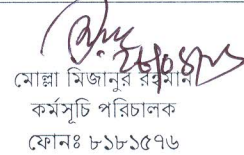 মোল্লা মিজানুর রহমান
কর্মসূচি পরিচালক
ফোনঃ ৮১৮১৫৭৬